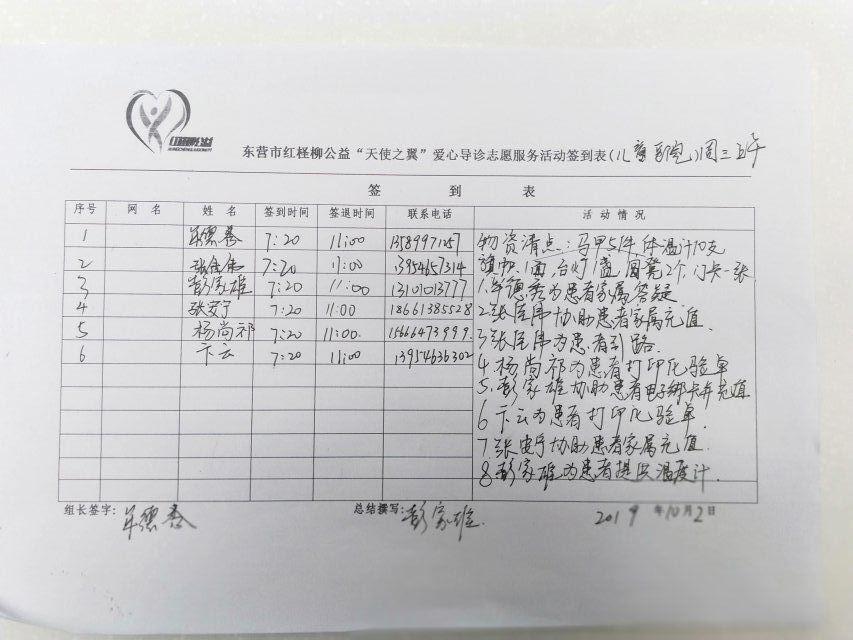 红柽柳公益
东营市红柽柳公益“天使之翼”爱心导诊志愿服务活动签到表(儿童 周三上午
签 到 表
序号 网 名 姓 名 签到时间 签退时间 联系电话 活 动 情 况
1 7:20 11:00
2 张 7:20 11:00 13954657314
3 彭家雄 7:20 11:00 13101013777
4 张安宁 7:20 11:00 18661385528
5 杨尚祁 7:20 11:00. 15666473999.
6 卞云 7:20 11:00 13954636302
物资清点:马甲51件,体温计10支
旗帜1面,台灯1盏,圆凳2个,门卡一张
1. 为患者家属答疑
2. 张 协助患者家属充值.
3. 张 为患者引路.
4. 杨尚祁为患者打印化验单
5. 彭家雄协助患者电子绑卡并充值
6. 卞云为患者打印化验单.
7. 张安宁协助患者家属充值.
8. 彭家雄为患者提供温度计.
组长签字: 总结撰写:彭家雄. 2019年10月2日